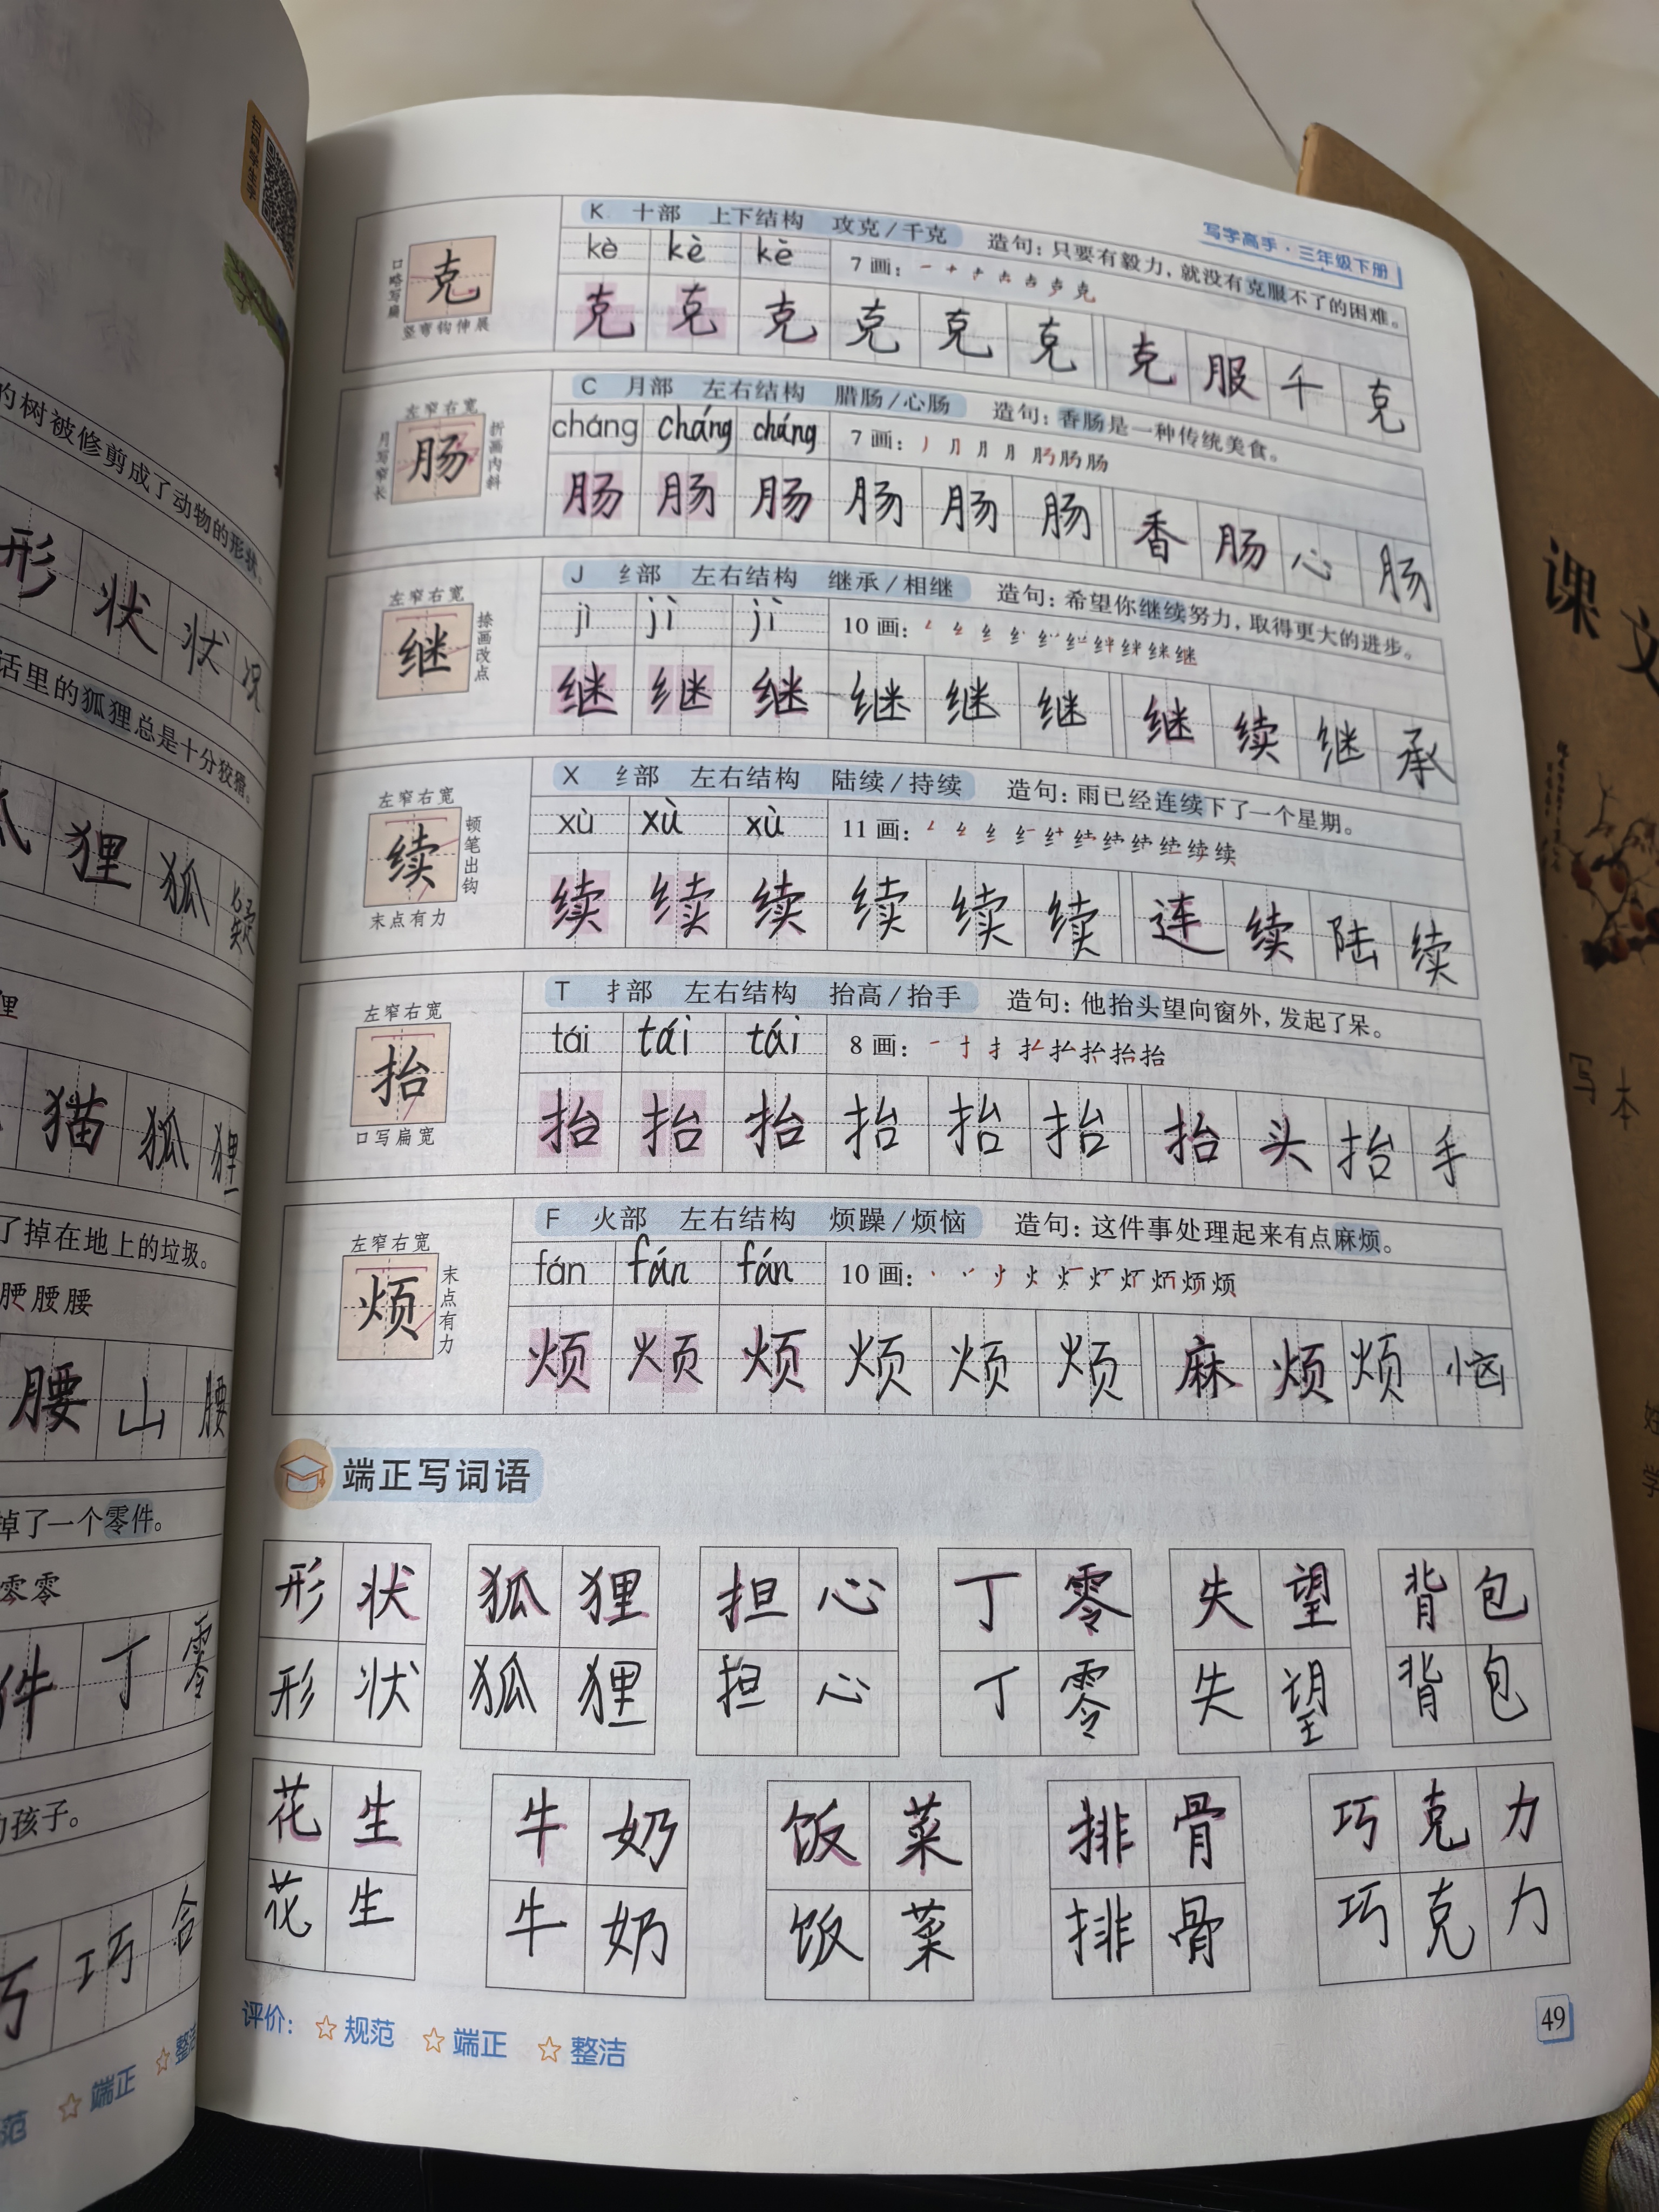 扫码学练字
的树被修剪成了动物的形状。
形 状 状 况
话里的狐狸总是十分狡猾。
狸 狐 疑
狸
猫 狐 狸
了掉在地上的垃圾。
腰 腰 腰
腰 山 腰
掉了一个零件。
零 零
件 丁 零
孩子。
巧 巧 合
范 ☆ 端正 ☆ 整洁
写字高手·三年级下册
K 十部 上下结构 攻克/千克 造句：只要有毅力，就没有克服不了的困难。
口略写扁 克 竖弯钩伸展
kè kè kè 7画：
克 克 克 克 克 克 克 服 千 克
C 月部 左右结构 腊肠/心肠 造句：香肠是一种传统美食。
左窄右宽 月写窄长 肠 折画内斜
cháng cháng cháng 7画：
肠 肠 肠 肠 肠 肠 香 肠 心 肠
J 纟部 左右结构 继承/相继 造句：希望你继续努力，取得更大的进步。
左窄右宽 继 捺画改点
jì jì jì 10画：
继 继 继 继 继 继 继 续 继 承
X 纟部 左右结构 陆续/持续 造句：雨已经连续下了一个星期。
左窄右宽 续 顿笔出钩 末点有力
xù xù xù 11画：
续 续 续 续 续 续 连 续 陆 续
T 扌部 左右结构 抬高/抬手 造句：他抬头望向窗外，发起了呆。
左窄右宽 抬 口写扁宽
tái tái tái 8画：
抬 抬 抬 抬 抬 抬 抬 头 抬 手
F 火部 左右结构 烦躁/烦恼 造句：这件事处理起来有点麻烦。
左窄右宽 烦 末点有力
fán fán fán 10画：
烦 烦 烦 烦 烦 烦 麻 烦 烦 恼
端正写词语
形状 狐狸 担心 丁零 失望 背包
形状 狐狸 担心 丁零 失望 背包
花生 牛奶 饭菜 排骨 巧克力
花生 牛奶 饭菜 排骨 巧克力
评价：☆ 规范 ☆ 端正 ☆ 整洁
49
课文
写本